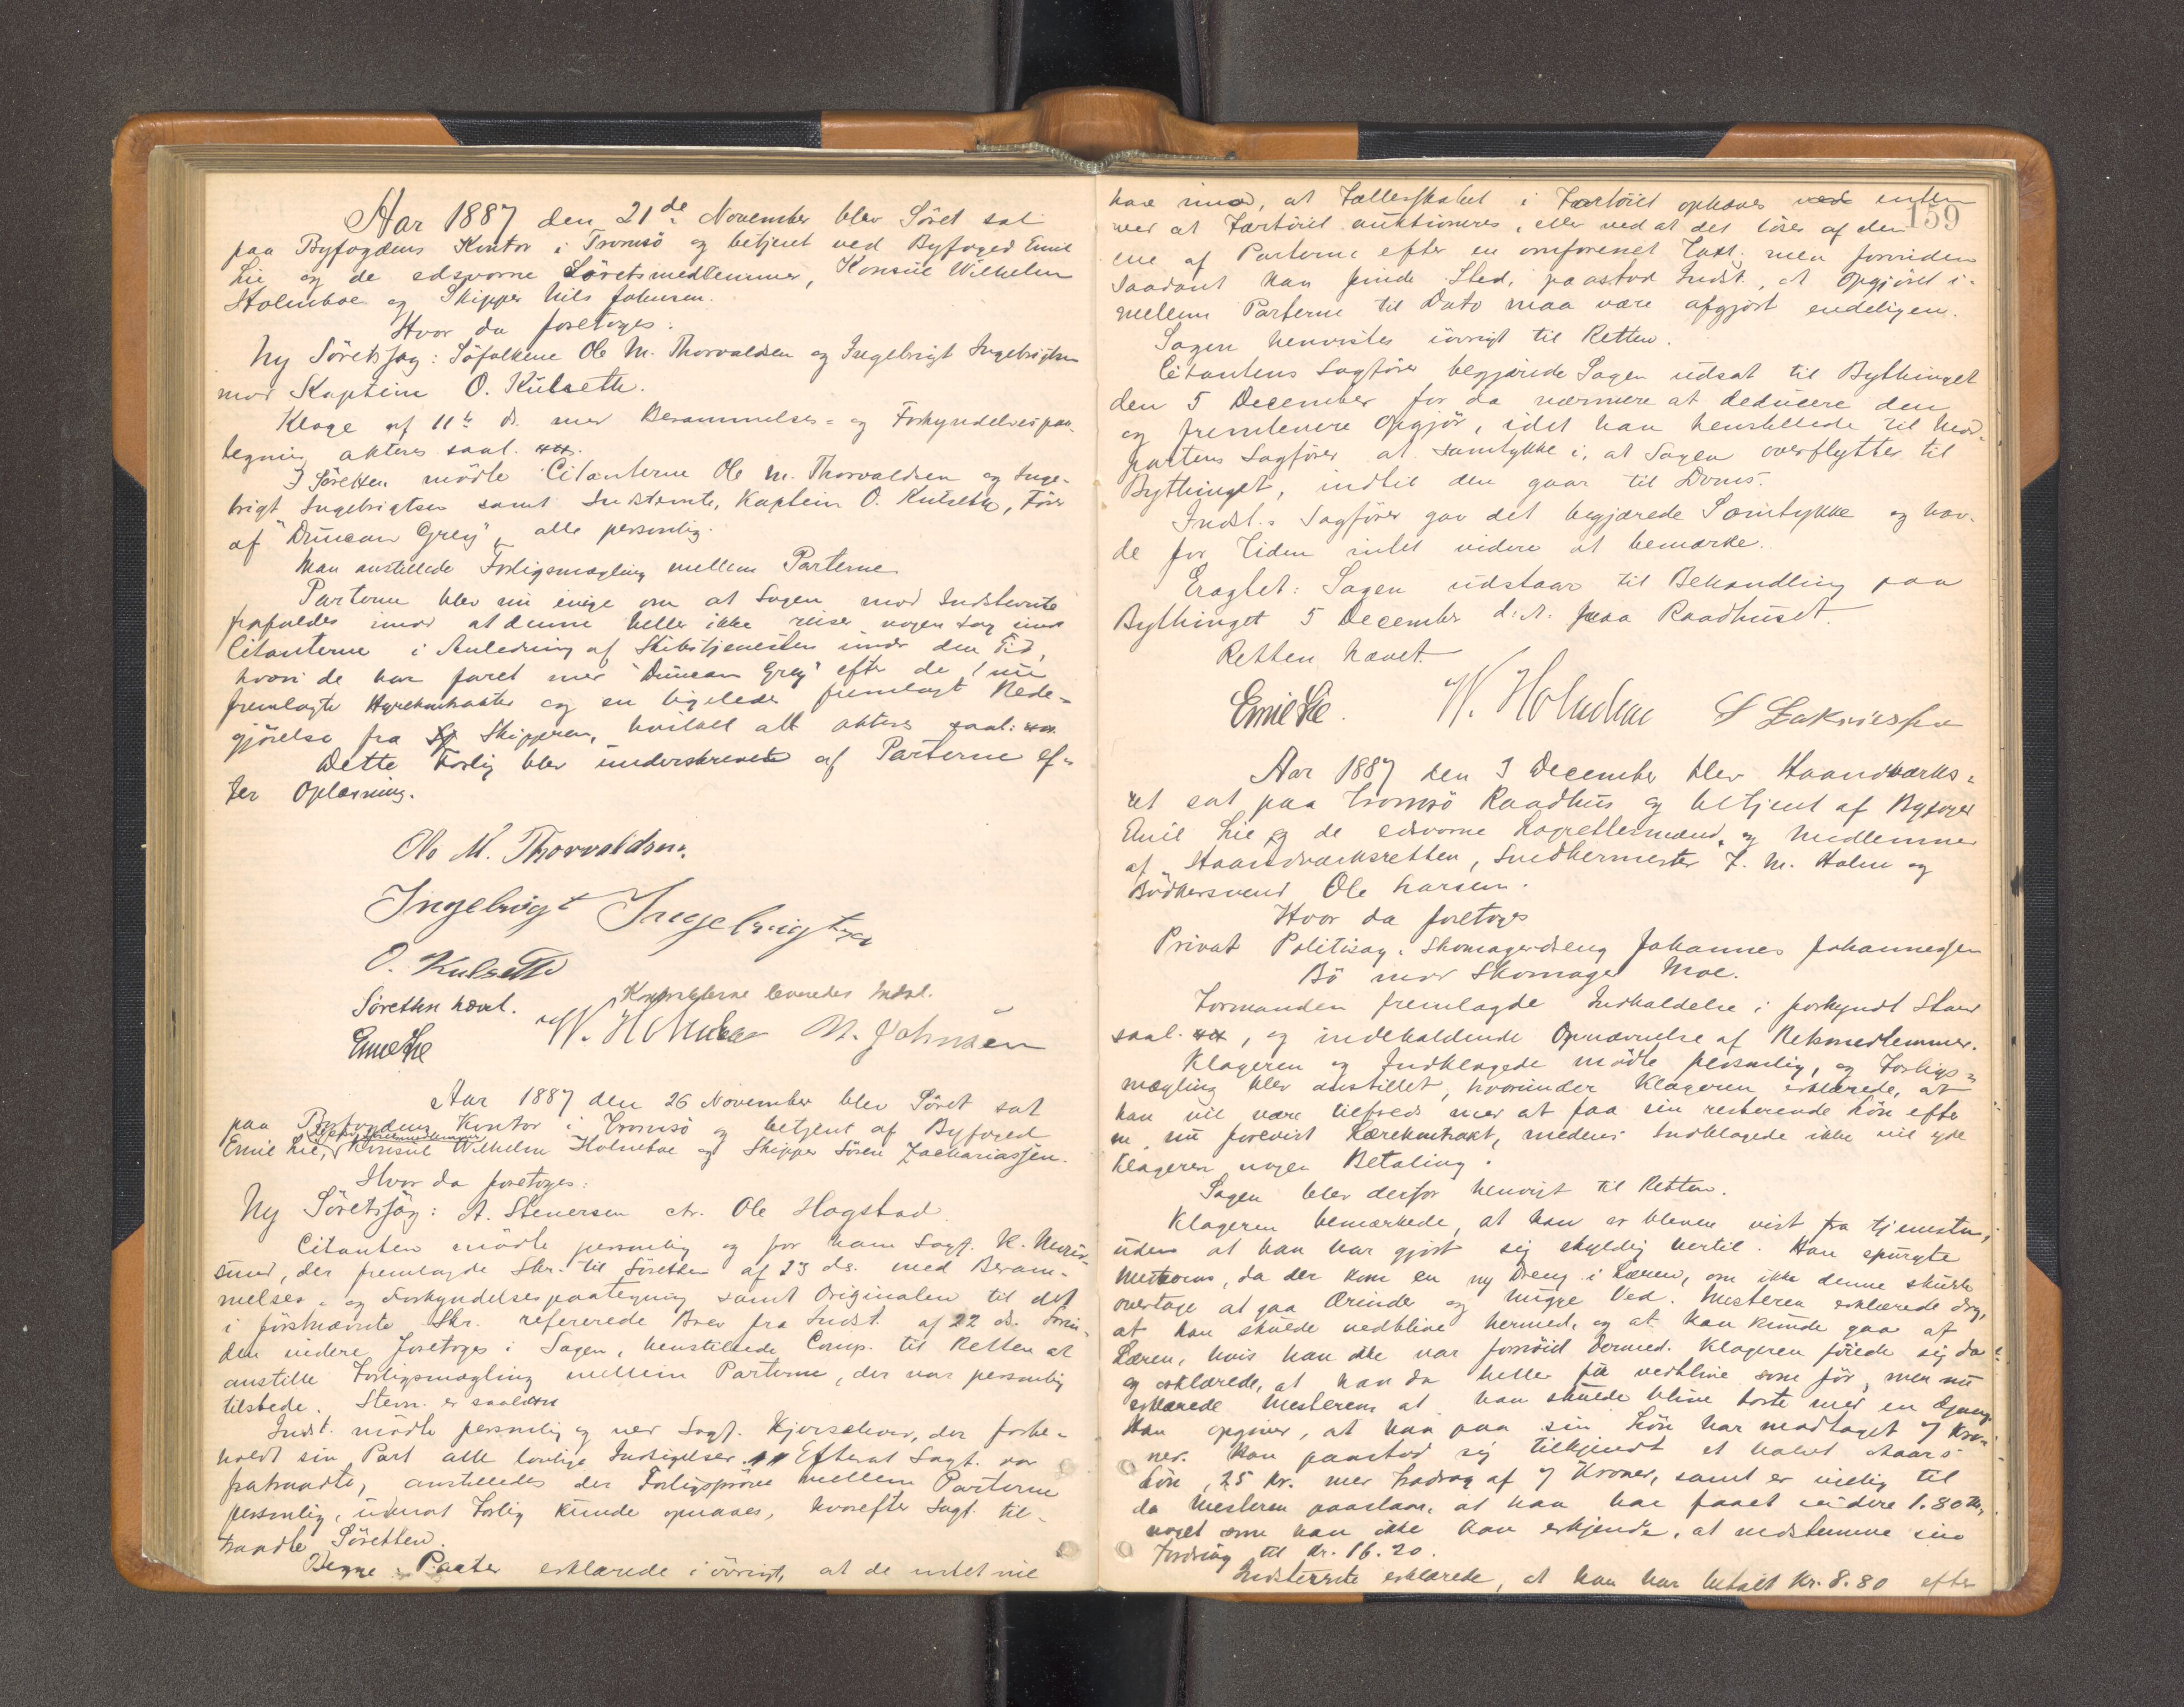 Aar 1887 den 21de November blev Söret sat
paa Byfogdens Kontor i Tromsö og betjent ved Byfoged Emil
Lie og de edsvorne Söretsmedlemmer, Konsul Wilhelm
Holmboe og Skipper Nils Johnsen.
Hvor da foretoges:
Ny Söretssag: Söfolkene Ole M. Thorvaldsen og Ingebrigt Ingebrigtsen
mod Kaptein O. Kulseth.
Klage af 11te ds. med Berammelses- og Forkyndelsespaa-
tegning akteres saal.
I Söretten mödte Citanterne Ole M. Thorvaldsen og Inge-
brigt Ingebrigtsen samt Indstevnte, Kaptein O. Kulseth, Förer
af "Duncan Grey", alle personlig.
Man anstillede Forligsmægling mellem Parterne.
Parterne blev nu enige om at Sagen mod Indstevnte
frafaldes imod at denne heller ikke reiser nogen Sag imod
Citanterne i Anledning af Skibstjenesten under den Tid,
hvori de har faret med "Duncan Grey" efter de nu
fremlagte Hyrekontrakter og en ligeledes fremlagt Rede-
gjörelse fra Skipperen, hvilket alt akteres saal:
Dette Forlig blev underskrevet af Parterne ef-
ter Oplæsning.
Ole M. Thorvaldsen.
Ingebrigt Ingebrigtsen
O. Kulseth
Kontrakterne leveredes Indst.
Söretten hævet.
Emil Lie W. Holmboe N. Johnsen
Aar 1887 den 26 November blev Söret sat
paa Byfogdens Kontor i Tromsö og betjent af Byfoged
Emil Lie, Konsul Wilhelm Holmboe og Skipper Sören Zachariassen.
Hvor da foretoges:
Ny Söretssag: A. Stenersen ctr. Ole Hagstad.
Citanten mödte personlig og for ham Sagf. K. 
sund, der fremlagde Skr. til Söretten af 23 ds. med Beram-
melses- og Forkyndelsespaategning samt Originalen til det
i förstnævnte Skr. refererede Brev fra Indst. af 22 ds. Forin-
den videre foretoges i Sagen, henstillede Comp. til Retten at
anstille Forligsmægling mellem Parterne, der var personlig
tilstede. Stevn. er saal.
Indst. mödte personlig og ved Sagf. Kjerschow, der forbe-
holdt sin Part alle lovlige Indsigelser. Efterat Sagf. var
fratraadte, anstilledes der Forligspröve mellem Parterne
personlig, uden at Forlig kunde opnaaes, hvorefter Sagf. til-
traadte Söretten.
Begge Parter erklærede iövrigt, at de intet vil
159
have imod, at Fællesskabet i Fartöiet ophæves enten
ved at Fartöiet auktioneres, eller ved at det löses af den
ene af Parterne efter en omforenet Taxt; men forinden
saadant kan finde Sted, paastod Indst., at Opgjöret i-
mellem Parterne til Dato maa være afgjort endeligen.
Sagen henvistes iövrigt til Retten.
Citantens Sagförer begjærede Sagen udsat til Bythinget
den 5 December for da nærmere at deducere den
og fremlevere Opgjör, idet han henstillede til Mod-
partens Sagförer at samtykke i, at Sagen overflyttes til
Bythinget, indtil den gaar til Doms.
Indst.s Sagförer gav det begjærede Samtykke og hav-
de for Tiden intet videre at bemærke.
Eragtet: Sagen udstaar til Behandling paa
Bythinget 5 December d. A. paa Raadhuset.
Retten hævet.
Emil Lie. W. Holmboe S Zakriesen
Aar 1887 den 3 December blev Haandværks-
ret sat paa Tromsö Raadhus og betjent af Byfoged
Emil Lie og de edsvorne Lagrettesmænd og Medlemmer
af Haandværksretten, Smedhermester J. M. Holm og
Bödkersvend Ole Larsen.
Hvor da foretoges
Privat Politisag: Skomagerdreng Johannes Johannessen
Bö mod Skomager Moe.
Formanden fremlagde Indkaldelse i forkyndt Stand
saal. , og indeholdende Opnævnelse af Retsmedlemmer.
Klageren og Indklagede mödte personlig, og Forligs-
mægling blev anstillet, hvorunder Klageren erklærede, at
han vil være tilfreds med at faa sin resterende Lön efter
en nu forevist Lærekontrakt, medens Indklagede ikke vil yde
Klageren nogen Betaling.
Sagen blev derfor henvist til Retten.
Klageren bemærkede, at han er bleven vist fra tjenesten,
uden at han har gjort sig skyldig hertil. Han spurgte
Mesteren, da der kom en ny Dreng i Læren, om ikke denne skulde
overtage at gaa Ærinder og hugge Ved. Mesteren erklærede dog,
at han skulde vedblive hermed, og at han kunde gaa af
Læren, hvis han ikke var fornöiet dermed. Klageren föiede sig da
og erklærede, at han da heller fik vedblive som för, men nu
erklærede Mesteren at han skulde blive borte med en Gang.
Han opgiver, at han paa sin Lön har modtaget 7 Kro-
ner. Han paastod sig tilkjendt et halvt Aars
Lön, 25 Kr. med Fradrag af 7 Kroner, samt er villig til
da Mesteren paastaar, at han har faaet videre 1.80 Kr,
noget som han ikke kan erkjende, at nedstemme sin
Fordring til Kr. 16.20.
Indstevnte erklærede, at han har betalt Kr. 8.80 efter